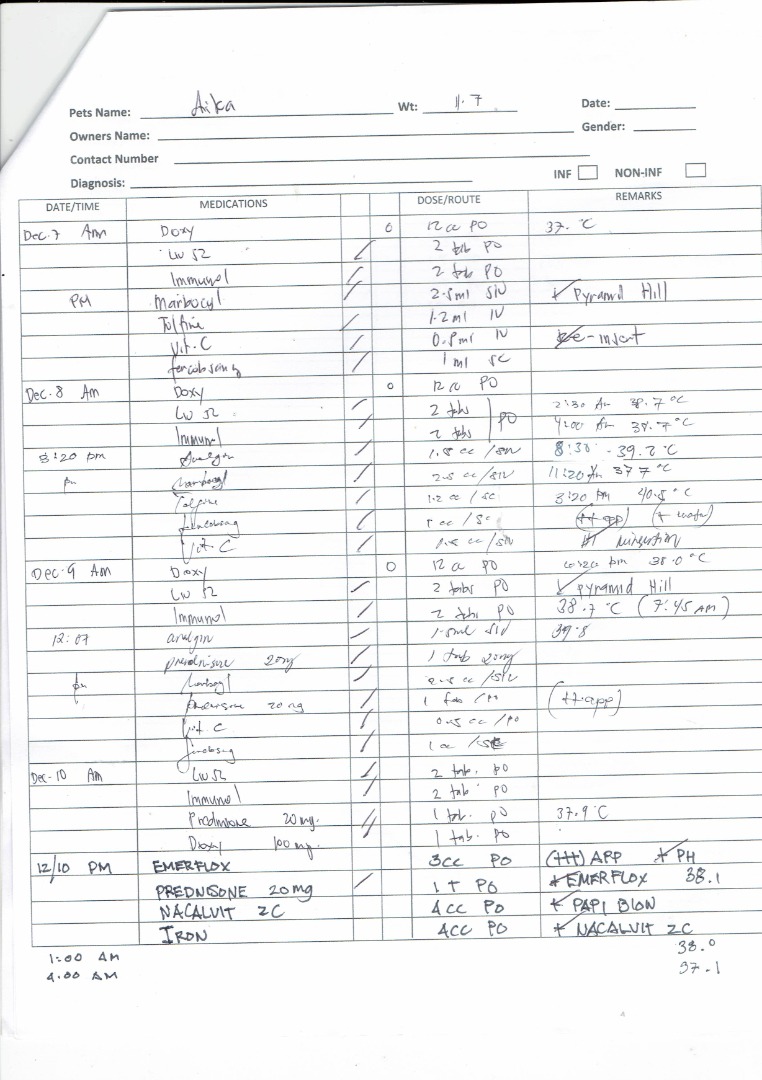 Pets Name: Aika Wt: 11.7 Date:
Owners Name: Gender:
Contact Number
INF NON-INF
Diagnosis:
DATE/TIME MEDICATIONS DOSE/ROUTE REMARKS
Dec. 7 Am Doxy 0 12 cc PO 37. °C
LW S2 / 2 tab PO
Immunol / 2 tab PO
PM Marbocyl / 2.5ml SIV Pyramid Hill
Tolfine / 1.2 ml IV
Vit. C / 0.5ml IV re-insert
/ 1 ml SC
Dec. 8 Am Doxy 0 12 cc PO
LW S2 / 2 tabs PO 2:30 Am 38.7 °C
Immunol / 2 tabs 4:00 Am 37.7 °C
8:20 pm Analgin / 1.5 cc /SIV 8:30 - 39.2 °C
pm Marbocyl / 2.5 cc /SIV 11:20 37 7 °C
Tolfine / 1.2 cc / SC 3:20 PM 40.5 °C
/ 1 cc / SC (++app) (+ water)
Vit. C / /SIV
Dec. 9 Am Doxy 0 12 cc PO 10:20 pm 38.0 °C
LW S2 / 2 tabs PO Pyramid Hill
Immunol / 2 tabs PO 38.7 °C (7:45 AM)
12:07 analgin / 1.5ml SIV 39.8
20mg / 1 tab 20mg
pm / 2.5 cc /SIV
20 mg / 1 tab /PO (++app)
Vit. C / 0.5 cc /PO
/ 1 cc /SC
Dec-10 Am LW S2 / 2 tab. PO
Immunol / 2 tab PO
Prednisone 20 mg. / 1 tab. PO 37.9 °C
Doxy 100 mg. / 1 tab. PO
12/10 PM EMERFLOX 3cc PO (+++) APP + PH
PREDNISONE 20mg / 1 T PO + EMERFLOX 38.1
NACALVIT ZC 4cc PO + PAPI BION
IRON 4CC PO + NACALVIT ZC
1:00 AM 38.0
4:00 AM 37.1